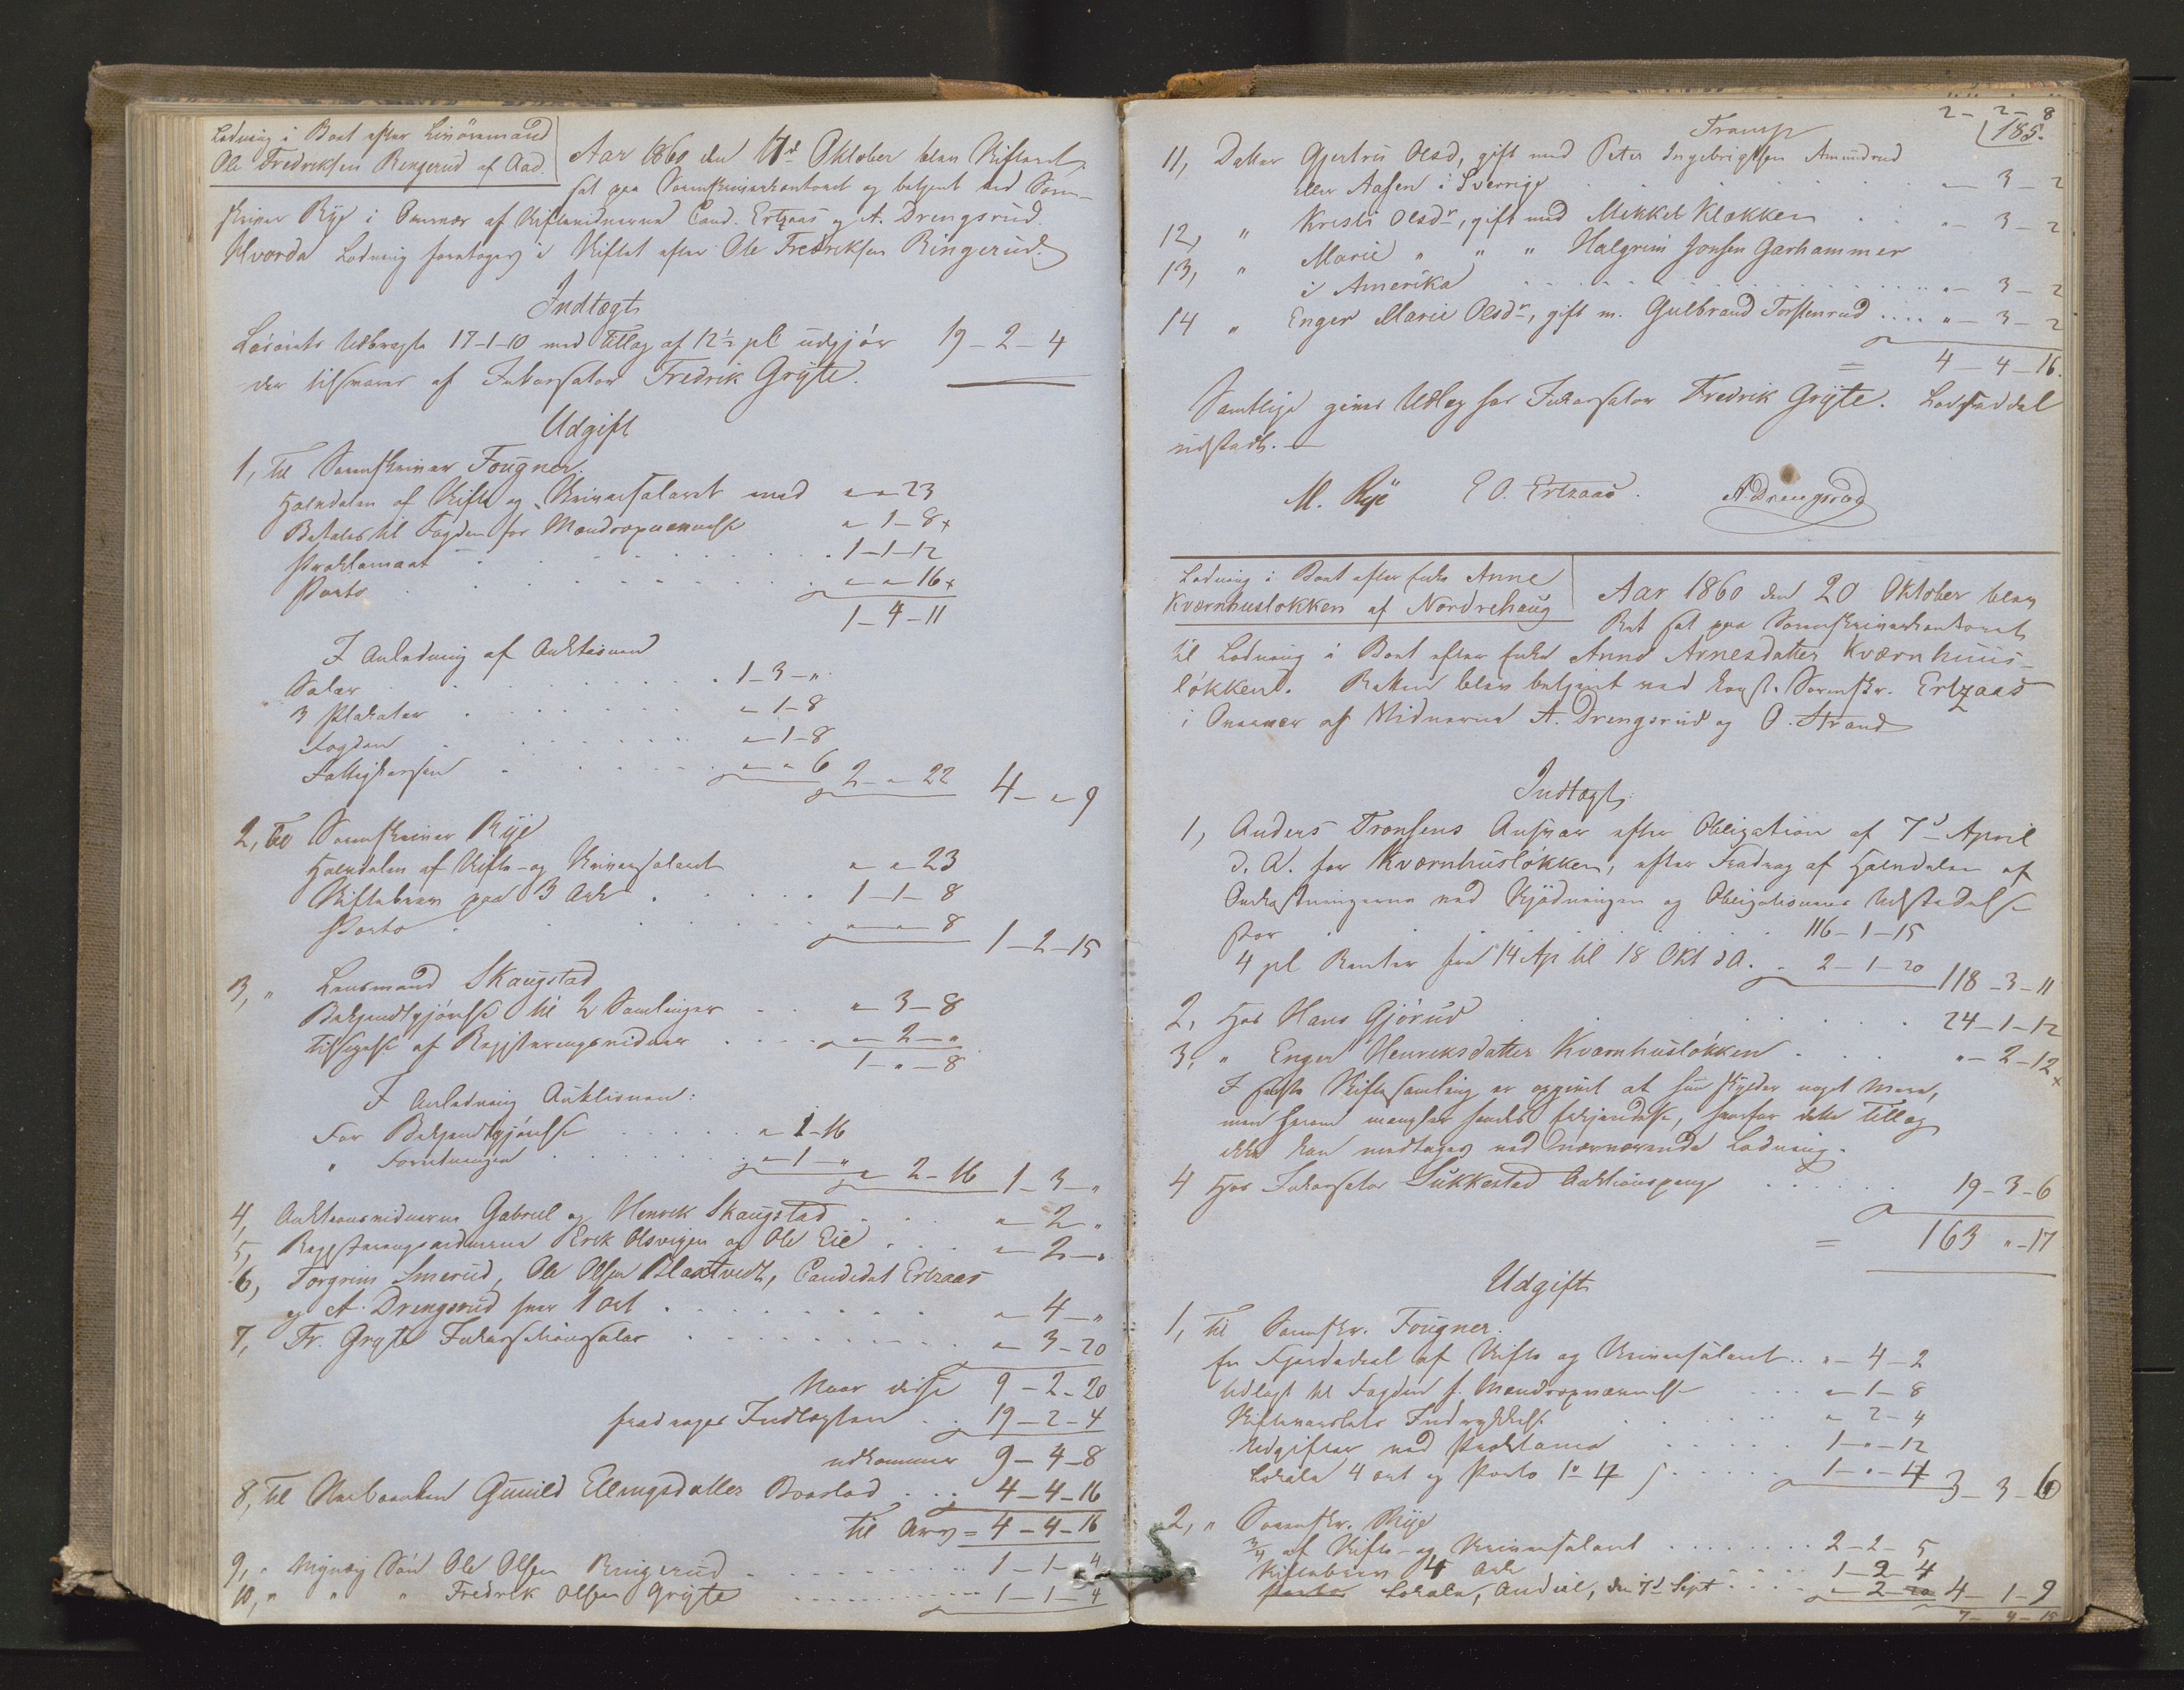 Lodning i Boet efter Livöremand
Ole Fredriksen Ringerud af Aad.
Aar 1860 den 17d Oktober blev Skifteret
sat paa Sorenskriverkontoret og betjent ved Soren-
skriver Rye i Overvær af Skiftevidnerne Cand. Ertzaas og A. Drengsrud.
Hvorda Lodning foretoges i Skiftet efter Ole Fredriksen Ringerud.
Indtægt
Lösörets Udbragte 17-1-10 med Tillæg af 12½ pC udgjör 19-2-4
der tilsvares af Inkassator Fredrik Gryte.
Udgift
1, Til Sorenskriver Fougner.
Halvdelen af Skifte og Skriversalaret med " " 23
Betales til Fogden for Mændsopnævnelse " 1-8
Proklamaet . . . 1-1-12
Porto . . . " " 16
1-4-11
I Anledning af Auktionen
Salær . . . 1-3-"
3 Plakater . . . "-1-8
Fogden . . . "-1-8
Fattigkassen . . . " " 6 2-"-22 4-"-9
2, Til Sorenskriver Rye
Halvdelen af Skifte- og Skriversalaret " " 23
Skiftebrev paa 3 Ark . . . 1-1-8
Porto . . . " " 8 1-2-15
3, " Lensmand Skaugstad
Bekjendtgjörelse til 2 Samlinger . . "-3-8
Tilsigelse af Registreringsvidner . . . "-2-"
1-"-8
I Anledning Auktionen:
For Bekjendtgjörelse . . . " 1-16
" Forretningen . . . "-1-" "-2-16 1-3-"
4, Auktionsvidnerne Gabriel og Henrik Skaugstad . . . "-2-"
5, Registreringsvidnerne Erik Olsvigen og Ole Eie . . . "-2-"
6, Torgrim Smerud, Ole Olsen Blaxtvedt, Candidat Ertzaas
og A. Drengsrud hver 1 Ort . . . "-4-"
7, Fr. Gryte Inkassationssalær . . . "-3-20
Naar disse 9-2-20
fradrages Indtægten . . 19-2-4
udkommer 9-4-8
8, Til Enken Gunild Ellingsdatter Boeslod . . . 4-4-16
Til Arv = 4-4-16
9, " Myndig Sön Ole Olsen Ringerud . . . 1-1-4
10, " " " Fredrik Olsen Gryte . . . 1-1-4
185.
Transp 2-2-8
11, Datter Gjertru Olsd, gift med Peter Ingebrigtsen Amundrud
eller Aasen i Sverrige . . . "-3-2
12, " Kristi Olsdr, gift med Mikkel Klækken . . "-3-2
13, " Marie " " " Halgrim Jonsen Garhammer
i Amerika . . . "-3-2
14 " Enger Marie Olsdr, gift m. Gulbrand Torstenrud .... "-3-2
= 4-4-16.
Samtlige gives Udlæg hos Inkassator Fredrik Gryte. Lodseddel
udstedt.
M. Rye E O. Ertzaas. A Drengsrud
Lodning i Boet efter Enke Anne
Kværnhuslökken af Nordrehaug
Aar 1860 den 20 Oktober blev
Ret sat paa Sorenskriverkontoret
til Lodning i Boet efter Enke Anne Arnesdatter Kværnhuus-
lökken. Retten blev betjent ved const. Sorenskr. Ertzaas
i Overvær af Vidnerne A. Drengsrud og O. Strand
Indtægt.
1, Anders Tronsens Ansvar efter Obligation af 7d April
d. A. for Kværnhuslökken, efter Fradrag af Halvdelen af
Omkostningerne ved Skjödningen og Obligationens Udstedelse
stor . . . 116-1-15
4 pC Renter fra 14 Ap til 18 Okt d A. . 2-1-20 118-3-11
2, Hos Hans Gjörud . . . 24-1-12
3, " Enger Henriksdatter Kværnhuslökken . . . "-2-12
I første Skiftesamling er opgivet at hun skylder noget mere,
men herom mangler hendes Erkjendelse, hvorfor dette Tillæg
ikke kan medtages ved nærværende Lodning.
4 Hos Inkassator Sukkestad Auktionspenge . . . 19-3-6
= 163 "-17
Udgift
1, Til Sorenskr. Fougner.
En Fjerdedeel af Skifte og Skriversalaret .. "-4-2
Udlagt til Fogden f. Mændsopnævnelse . . . "-1-8
Skiftevarslets Indrykkelse . . . "-2-4
Udgifter ved Proklama . . . 1-"-12
Lokale 4 ort og Porto 1"4 s . . . 1-"-4 3-3-6
2, " Sorenskr. Rye
¾ af Skifte- og Skriversalaret . . . 2-2-5
Skiftebrev 4 Ark 1-2-4
Lokale, Audiil, den 7d Sept . . . "-2 4-1-9
7-4-15